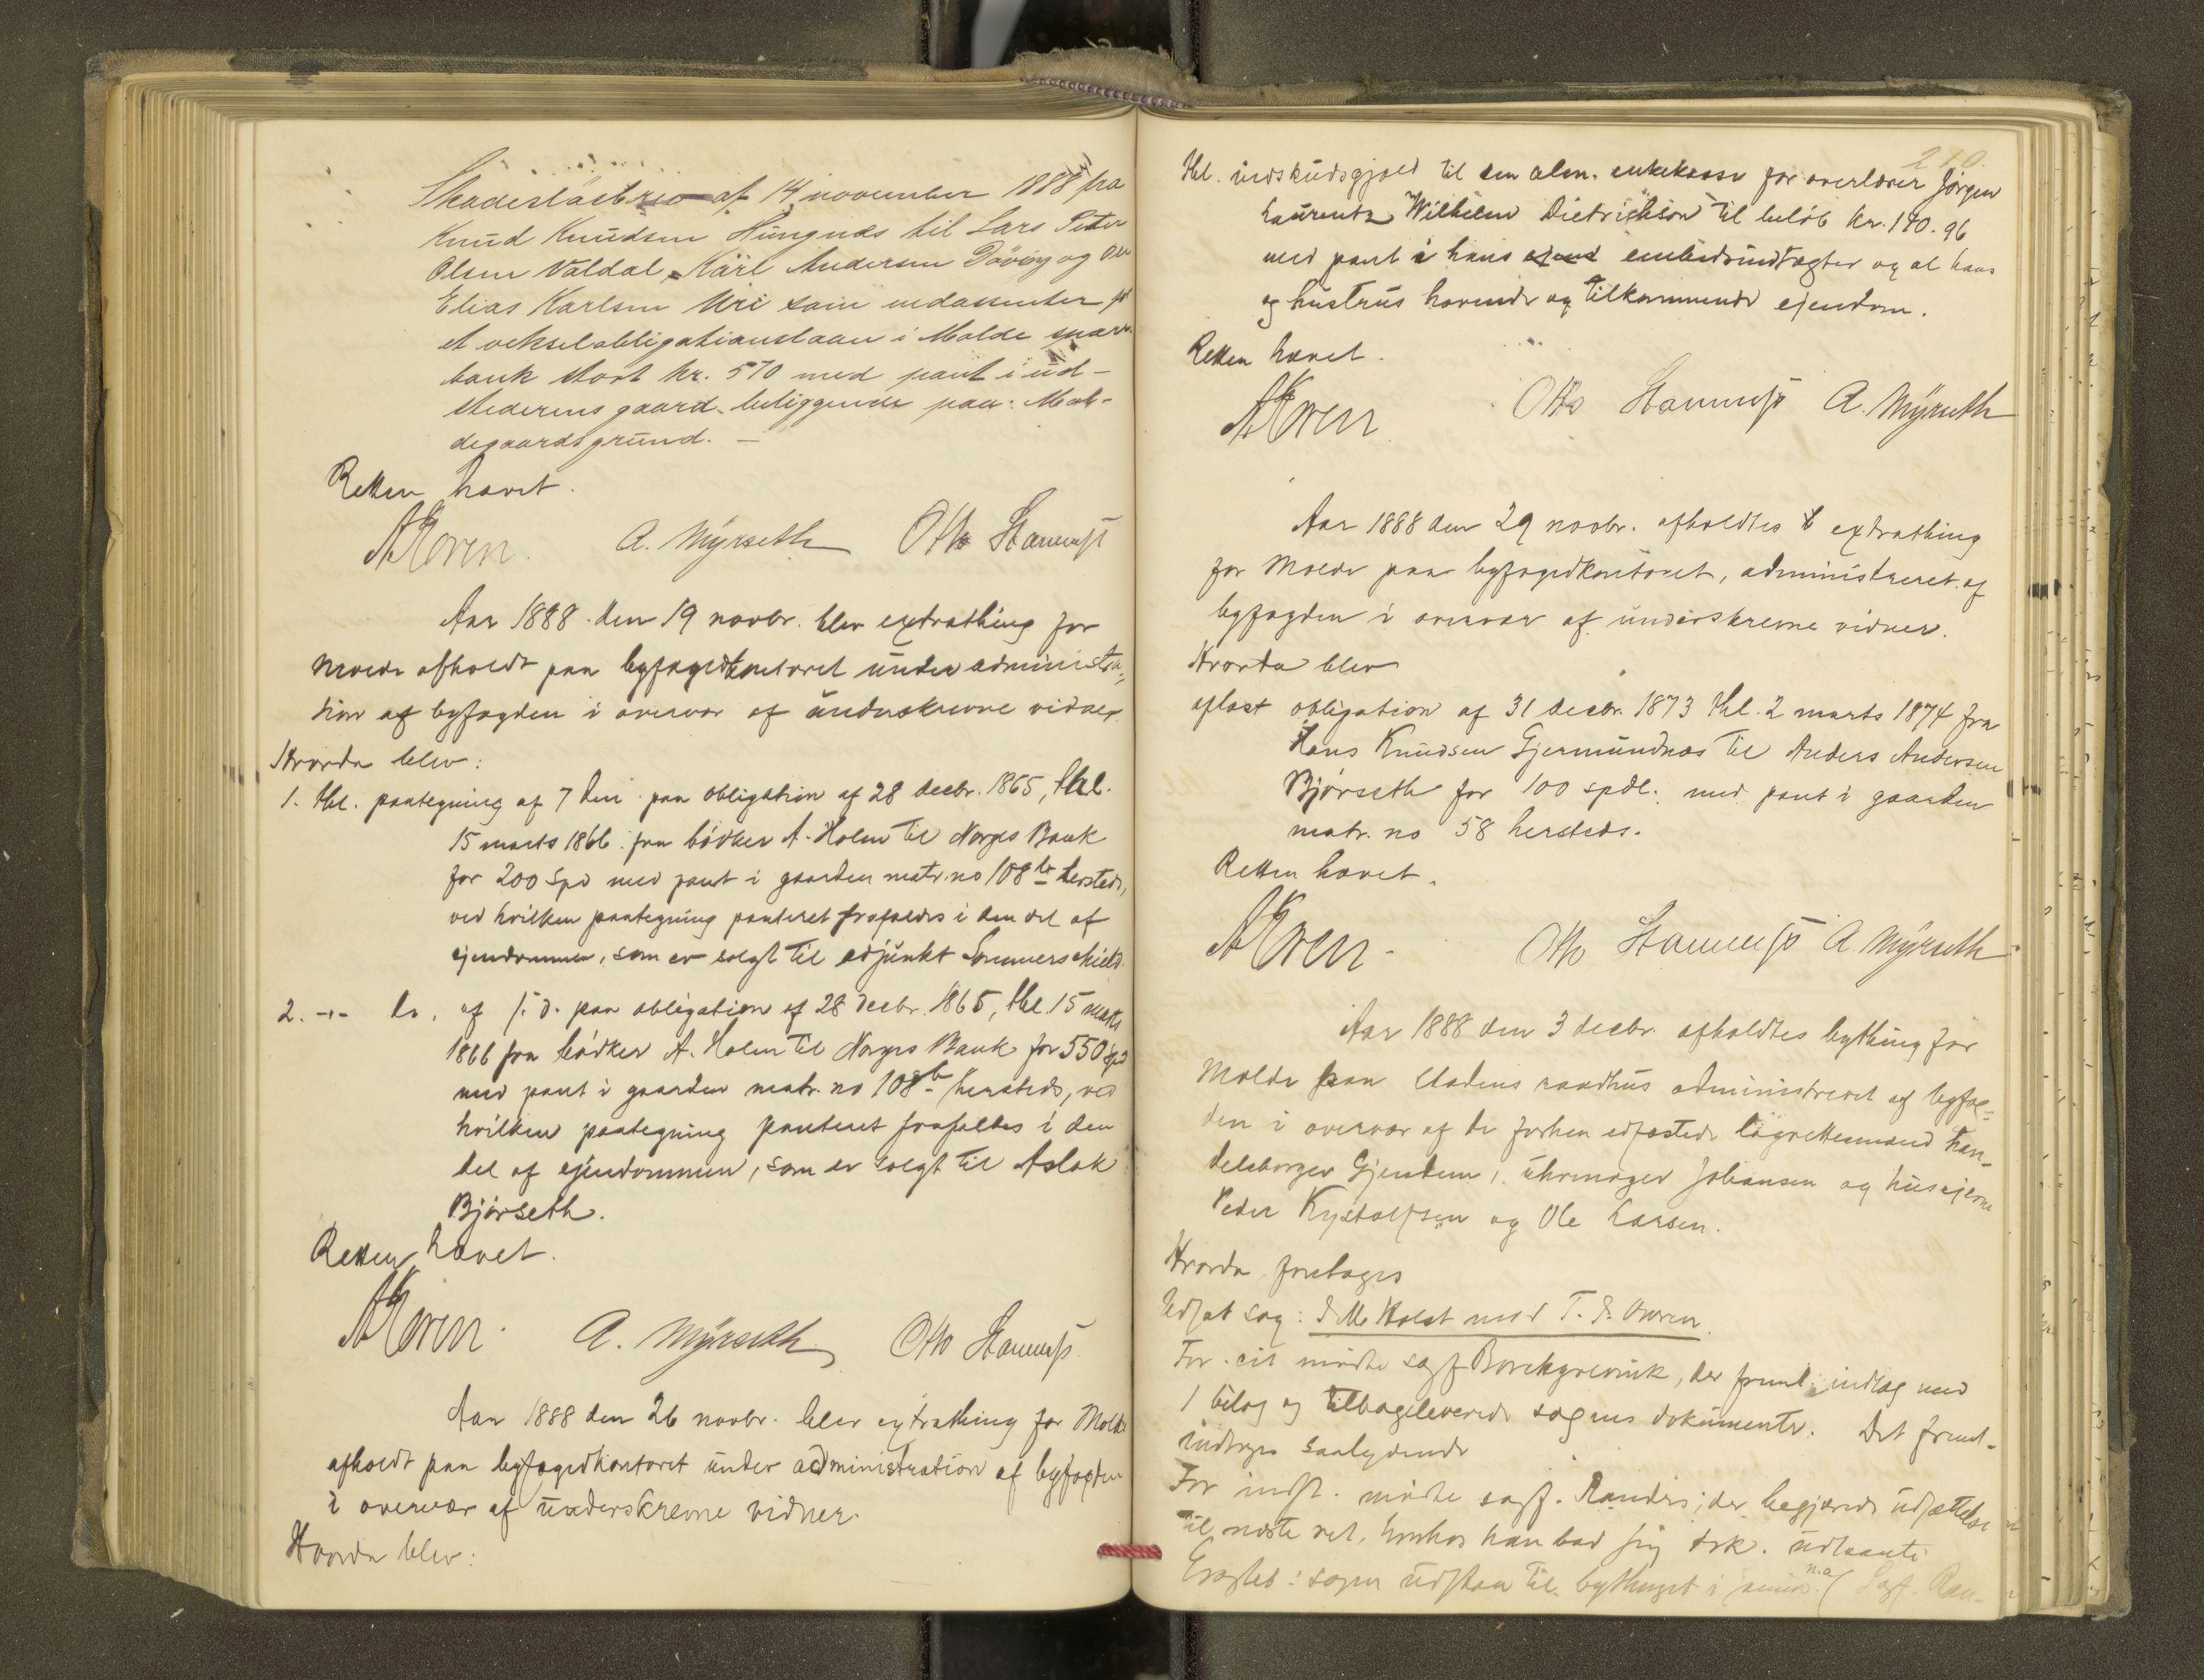 Skadeslösbrev af 14 november 1888 fra
Knud Knudsen Hungnes til Lars Peter
Olsen Valdal, Karl Andersen Döving og Ole
Elias Karlsen Uri som medassenter på
et vekselobligationslaan i Molde spare-
bank stort kr. 570 med pant i ud-
stederens gaard beliggende paa Mol-
degaards grund. –
Retten hævet.
A. Myrseth Otto
Aar 1888 den 19 novbr. blev extrathing for
Molde afholdt paa byfogedkontoret under administra-
tion af byfogden i overvær af underskrevne vidner
Hvorda blev:
1. thl. paategning af 7 dns. paa obligation af 28 decbr. 1865, thl.
15 marts 1866 fra bödker A. Holm til Norges Bank
for 200 Spd med pant i gaarden matr. no 108 b hersteds,
ved hvilken paategning panteret frafaldes i den del af
ejendommen, som er solgt til adjunkt Sommerschield
2. -"- do. af s. d. paa obligation af 28 decbr. 1865, thl. 15 marts
1866 fra bödker A. Holm til Norges Bank for 550 Spd
med pant i gaarden matr. no 108 b hersteds, ved
hvilken paategning panteret frafaldes i den
del af ejendommen, som er solgt til Aslak
Björseth.
Retten hævet.
A. Myrseth Otto
Aar 1888 den 26 novbr. blev extrathing for Molde
afholdt paa byfogedkontoret under administration af byfogden
i overvær af underskrevne vidner.
Hvorda blev:
210.
thl. indskudsgjæld til den alm. enkekasse for overlærer Jörgen
Laurentz Wilhelm Dietrichson til beløb kr. 140.96
med pant i hans embedsindtægter og al hans
og hustrus havende og tilkommende ejendom.
Retten hævet.
Otto A. Myrseth
Aar 1888 den 29 novbr. afholdtes extrathing
for Molde paa byfogedkontoret, administreret af
byfogden i overvær af underskrevne vidner.
Hvorda blev
aflæst obligation af 31 decbr. 1873 thl. 2 marts 1874 fra
Hans Knudsen Gjermundnæs til Anders Andersen
Björseth for 100 spdl. med pant i gaarden
matr. no 58 hersteds.
Retten hævet.
Otto A. Myrseth
Aar 1888 den 3 decbr. afholdtes bything for
Molde paa stadens raadhus administreret af byfog-
den i overvær af de forhen edfæstede lagrettesmænd han-
delsborger Gjendem, uhrmager Johansen og huseierne
Peder Kystolfsen og Ole Larsen.
Hvorda foretoges
Udsat sag: Holst mod T. Owren.
For cit. mödte sagf. Borchgrevink, der freml. indlæg med
1 bilag og tilbageleverede sagens dokumenter. Det freml.
indtages saalydende
For indst. mödte sagf. Randers, der begjærede udsættelse
til næste ret, hvorhos han bad sig dok. udlaante
Eragtet: sagen udstaar til bythinget i januar n.a. (Sagf. Ran-